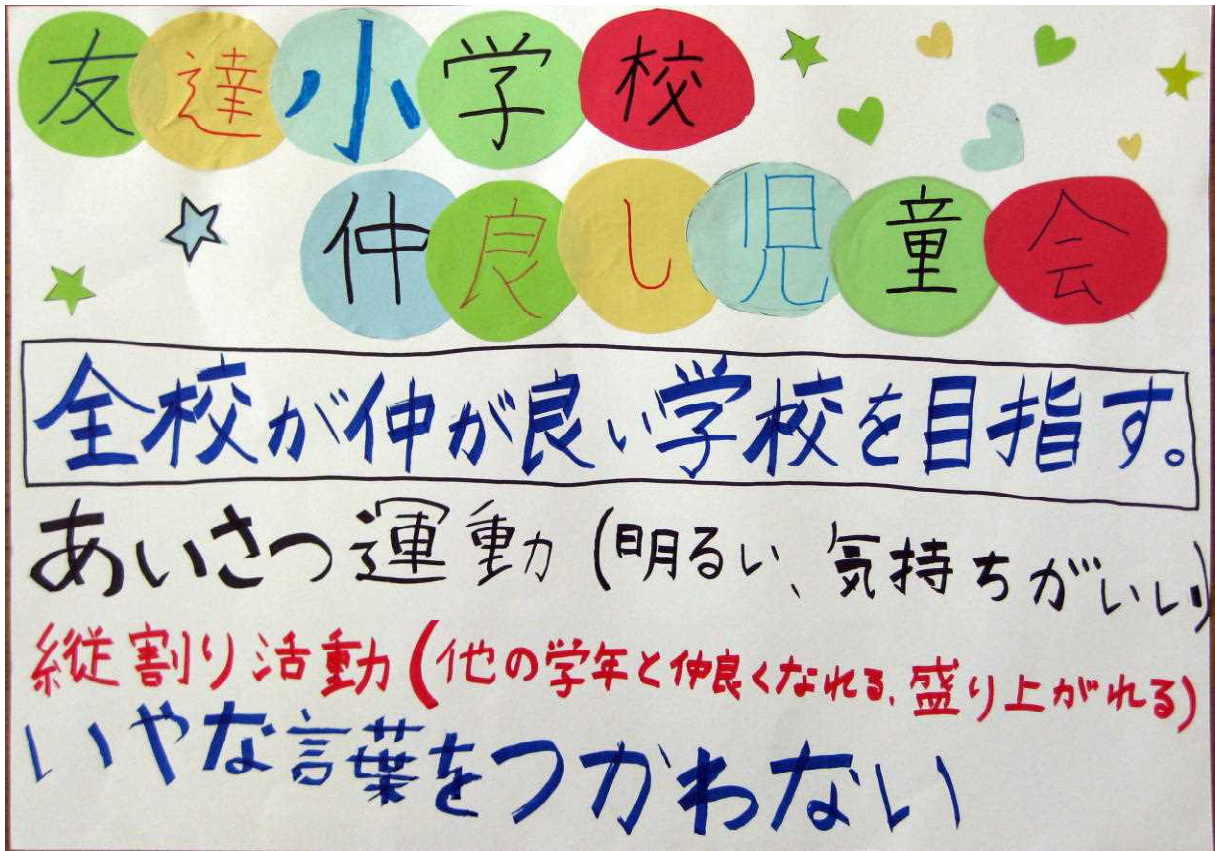 友達小学校
仲良し児童会
全校が仲が良い学校を目指す。
あいさつ運動(明るい、気持ちがいい)
縦割り活動(他の学年と仲良くなれる、盛り上がれる)
いやな言葉をつかわない